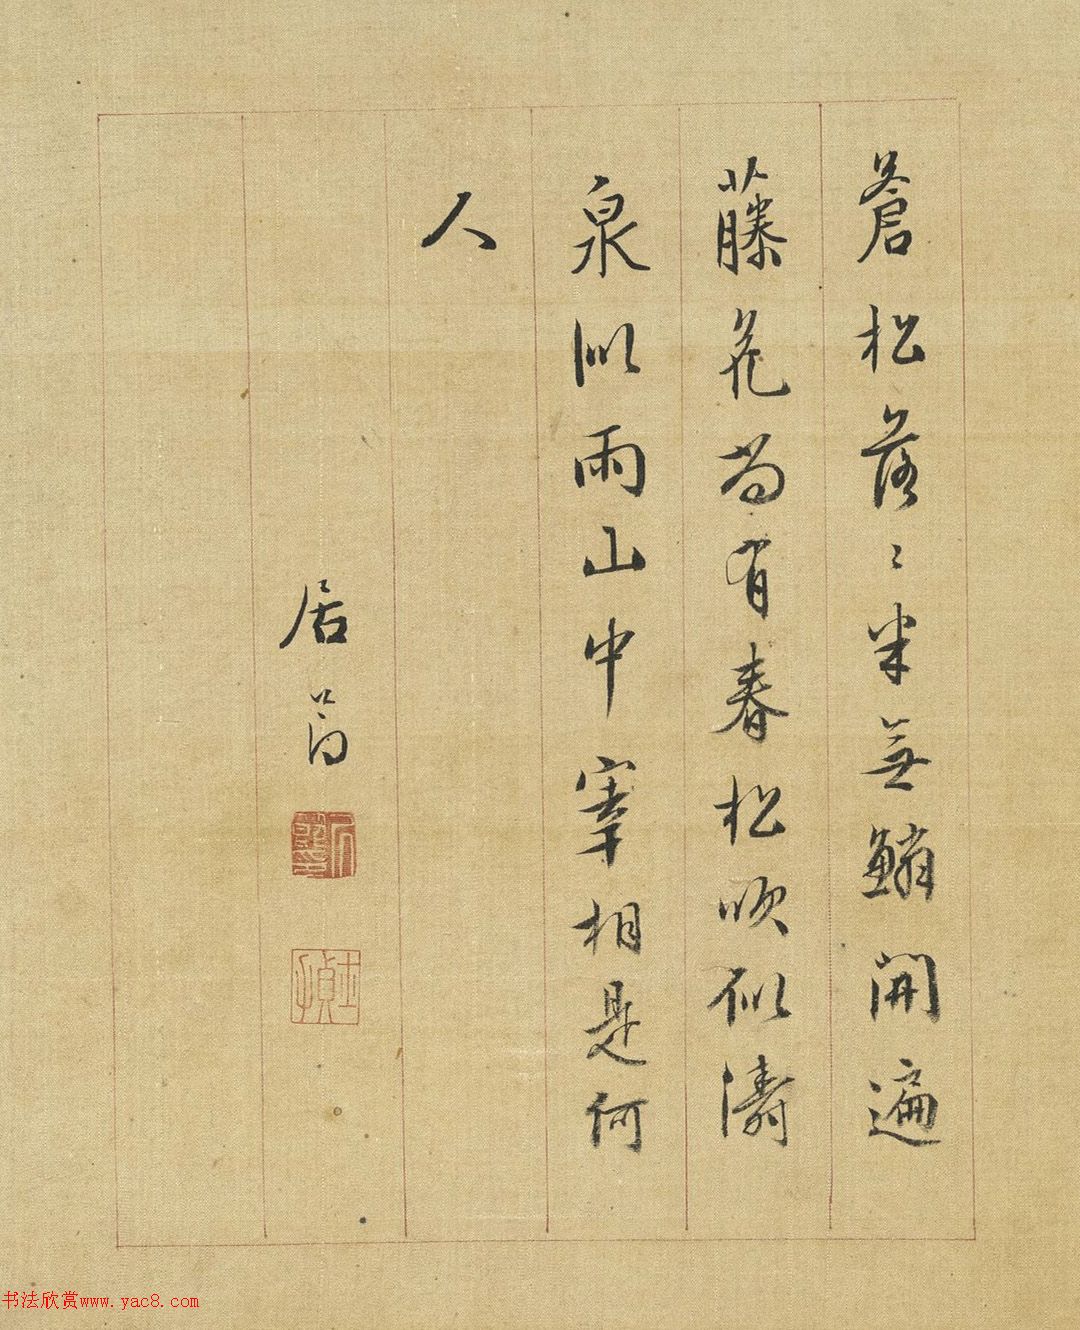 蒼松落〻半無鱗開遍
藤花尚有春松吹似濤
泉似雨山中宰相是何
人
居節
书法欣赏www.yac8.com